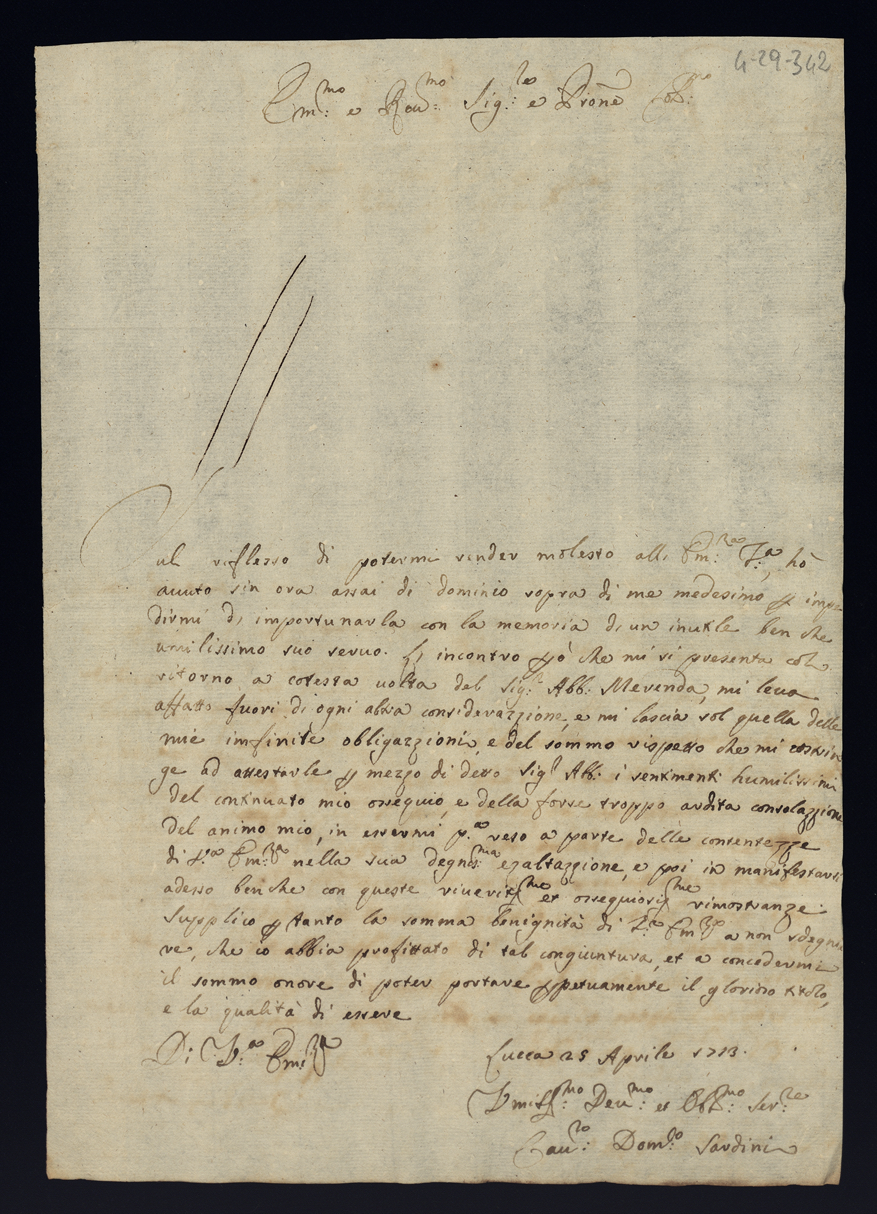 4-29-342
Em:mo e Reu:mo Sig:re e Prone Col:mo
Sul riflesso di potermi render molesto all: Em:za V:a, hò
auuto sin ora assai di dominio sopra di me medesimo p impe
dirmi di importunarla con la memoria di un inutile ben che
umilissimo suo seruo. L'incontro pò che mi si presenta col
ritorno a cotesta uolta del Sig:r Abb: Merenda, mi leua
affatto fuori di ogni altra considerazzione, e mi lascia sol quella delle
mie infinite obligazzioni, e del sommo rispetto che mi costrin
ge ad attestarle p mezzo di detto Sig:r Abb: i sentimenti humilissimi
del continuato mio ossequio, e della forse troppo ardita consolazzione
del animo mio, in essermi p:a reso a parte delle contentezze
di V:a Em:za nella sua degnis:ma ezaltazzione, e poi in manifestarsi
adesso benche con queste riueritiss:me et ossequiosiss:me rimostranze:
Supplico p tanto la somma benignità di V:a Em:za a non sdegna
re, che io abbia profittato di tal congiuntura, et a concedermi
il sommo onore di poter portare ppetuamente il glorioso titolo,
e la qualità di essere
Di V:a Em:za
Lucca 25 Aprile 1713.
Vmiliss:mo Deu:mo et Obl:mo Ser:re
Cau:ro Dom:co Sardini